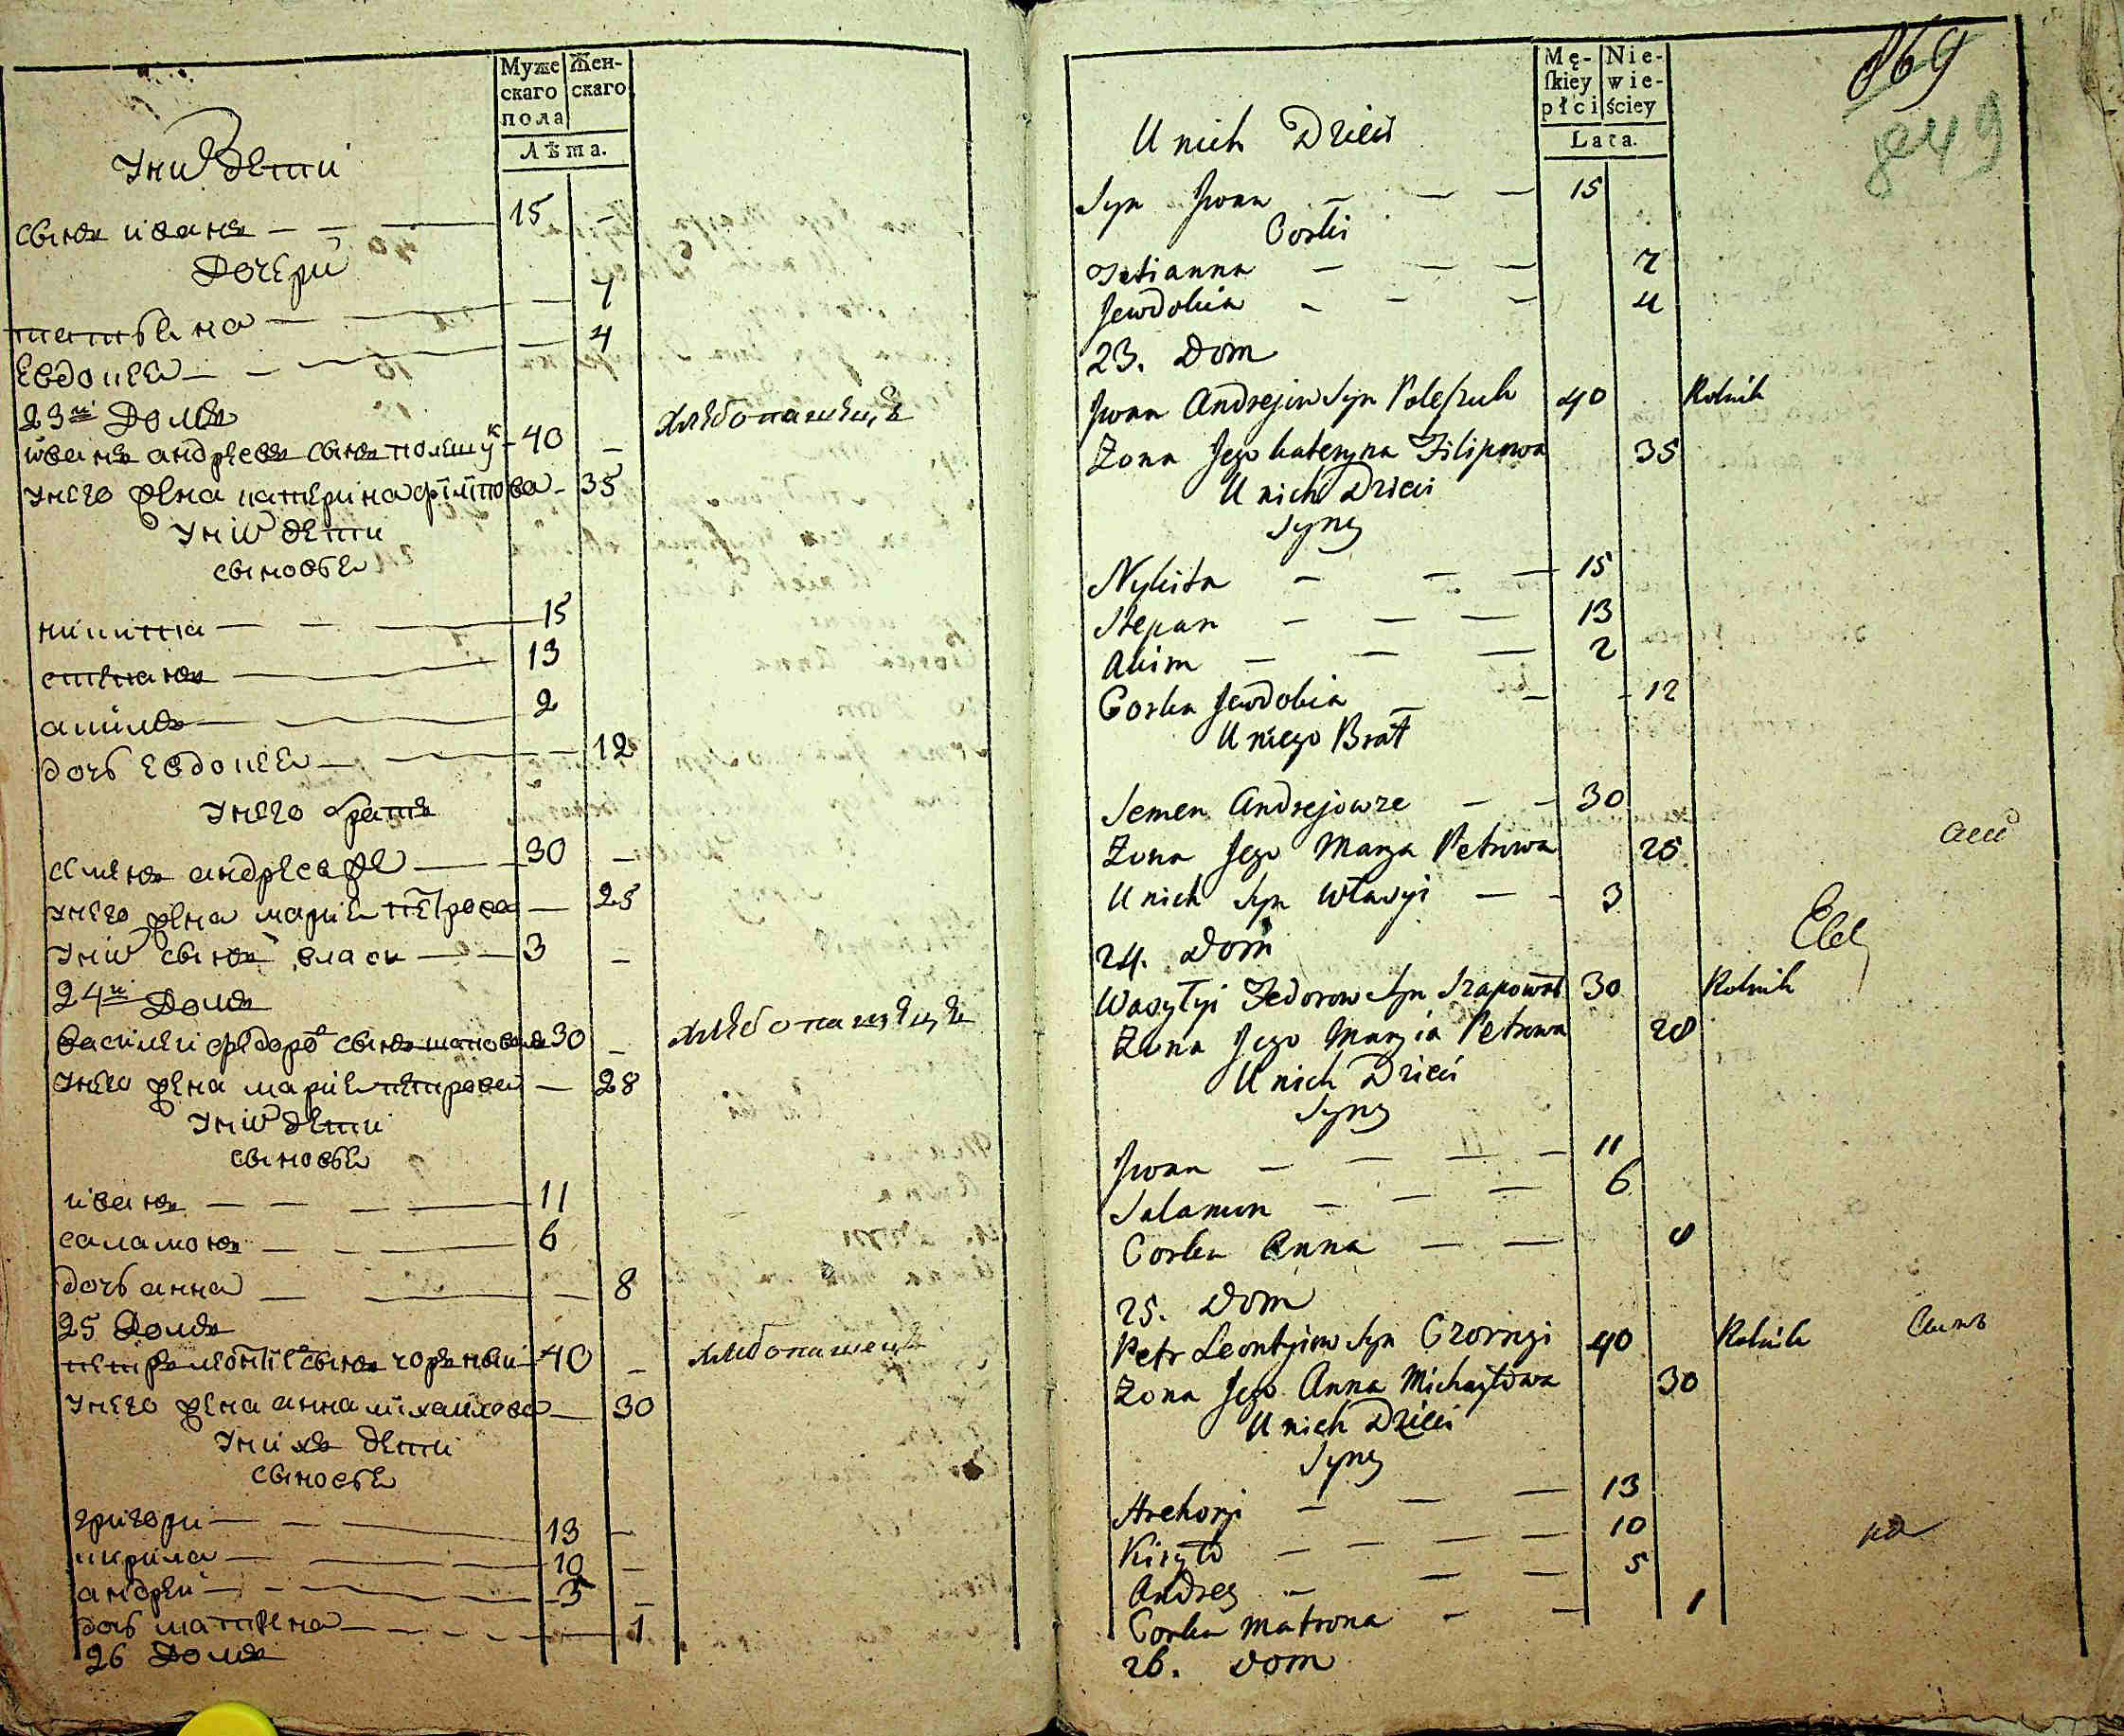 Муже
скаго
пола
Жен-
скаго
Лѣта.
у них дети
сынъ иванъ — — — 15 -
дочери
татьяна — — — 7
Евдокея — — — 4
23й Домъ
иванъ андреевъ сынъ полешук - 40 - хлебопашецъ
у него жена катерина филипова - 35
у них дети
сыновья
никита — — — 15
степанъ — 13
акимъ — — 2
дочь евдокея — — — 12
у него братъ
семенъ андреевже — — 30 -
у него жена мария петрова — 25
у них сынъ власи — — 3 -
24й Домъ
василеи федоров сынъ шаповалъ 30 - хлебопашецъ
у него жена мария петрова — 28
у них дети
сыновья
иванъ — — — — 11
саламонъ — — — 6
дочь анна — — — 8
25 Домъ
петръ леонтиев сынъ чорныи - 40 - хлебопашецъ
у него жена анна михаилова — 30
у нихъ дети
сыновья
григори — — — 13 -
кирила — — — 10 -
андреи — — — 5 -
дочь матрена — — — — 1
26 Домъ
Mę-
ſkiey
płci
Nie-
wie-
ściey
Lata.
869
849
U nich Dzieci
Syn Jwan — — — 15
Corki
Tatianna — — — 7
Jewdokia - - - 4
23. Dom
Jwan Andrejew Syn Poleszuk 40 Rolnik
Żona Jego Kateryna Filipowa 35
U nich Dzieci
Syny
Nykita — — — 15
Stepan — — — 13
Akim — — — 2
Corka Jewdokia — — - 12
U niego Brat
Semen Andrejowże — - 30
Żona Jego Marya Petrowa 25
U nich Syn Własyi — - 3
24. Dom
Wasyłyi Fedorow Syn Szapował 30 Rolnik
Żona Jego Maryia Petrowa 28
U nich Dzieci
Syny
Jwan — — — - 11
Salamon — — — 6
Corka Anna — — 8
25. Dom
Petr Leontyiew Syn Czornyi 40 Rolnik
Żona Jego Anna Michayłowa 30
U nich Dzieci
Syny
Hrehoryi — — — 13
Kiryło — — — — 10
Andrey — — — 5
Corka Matrona - — 1
26. Dom